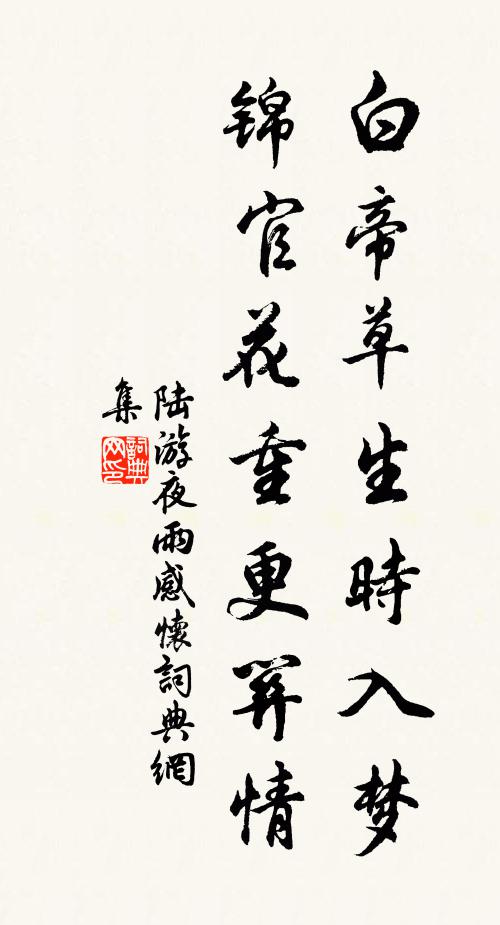 白帝草生時入梦
錦官花重更關情
陆游夜雨感懷詞典網
集
詞典网印